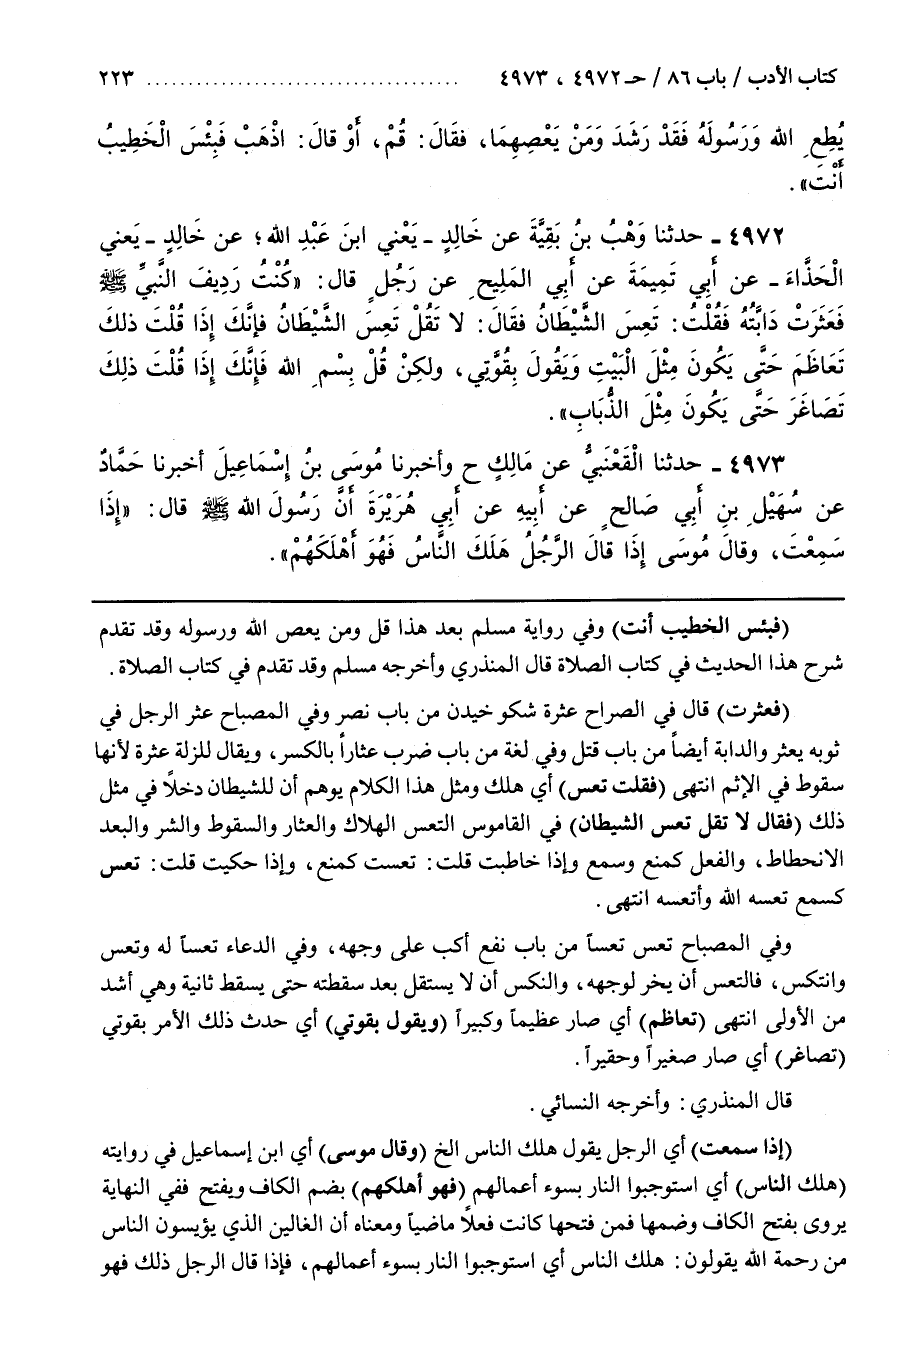 كتاب الأدب / باب ٨٦ / حـ ٤٩٧٢ ، ٤٩٧٣ ..................................... ٢٢٣
يُطِعِ الله وَرَسُولَهُ فَقَدْ رَشَدَ وَمَنْ يَعْصِهِمَا، فقَالَ: قُمْ، أَوْ قالَ: اذْهَبْ فَبِئْسَ الْخَطِيبُ
أَنْتَ».
٤٩٧٢ ـ حدثنا وَهْبُ بنُ بَقِيَّةَ عن خَالِدٍ ـ يَعْني ابنَ عَبْدِ الله؛ عن خَالِدٍ ـ يَعني
الْحَذَّاءَ ـ عن أَبِي تَمِيمَةَ عن أَبِي المَلِيحِ عن رَجُلٍ قال: «كُنْتُ رَدِيفَ النَّبيِّ ﷺ
فَعَثَرَتْ دَابَّتُهُ فَقُلْتُ: تَعِسَ الشَّيْطَانُ فقالَ: لا تَقُلْ تَعِسَ الشَّيْطَانُ فإنَّكَ إِذَا قُلْتَ ذلكَ
تَعَاظَمَ حَتَّى يَكُونَ مِثْلَ الْبَيْتِ وَيَقُولَ بِقُوَّتِي، ولكِنْ قُلْ بِسْمِ الله فَإنَّكَ إِذَا قُلْتَ ذلِكَ
تَصَاغَرَ حَتَّى يَكُونَ مِثْلَ الذُّبَابِ».
٤٩٧٣ ـ حدثنا الْقَعْنَبيُّ عن مَالِكٍ ح وأخبرنا مُوسَى بنُ إِسْمَاعِيلَ أخبرنا حَمَّادٌ
عن سُهَيْلِ بنِ أَبي صَالحٍ عن أَبيهِ عن أَبي هُرَيْرَةَ أَنَّ رَسُولَ الله ﷺ قال: «إِذَا
سَمِعْتَ، وقالَ مُوسَى إِذَا قالَ الرَّجُلُ هَلَكَ النَّاسُ فَهُوَ أَهْلَكَهُمْ».
(فبئس الخطيب أنت) وفي رواية مسلم بعد هذا قل ومن يعص الله ورسوله وقد تقدم
شرح هذا الحديث في كتاب الصلاة قال المنذري وأخرجه مسلم وقد تقدم في كتاب الصلاة.
(فعثرت) قال في الصراح عثرة شكو خيدن من باب نصر وفي المصباح عثر الرجل في
ثوبه يعثر والدابة أيضاً من باب قتل وفي لغة من باب ضرب عثاراً بالكسر، ويقال للزلة عثرة لأنها
سقوط في الإثم انتهى (فقلت تعس) أي هلك ومثل هذا الكلام يوهم أن للشيطان دخلاً في مثل
ذلك (فقال لا تقل تعس الشيطان) في القاموس التعس الهلاك والعثار والسقوط والشر والبعد
الانحطاط، والفعل كمنع وسمع وإذا خاطبت قلت: تعست كمنع، وإذا حكيت قلت: تعس
كسمع تعسه الله وأتعسه انتهى.
وفي المصباح تعس تعساً من باب نفع أكب على وجهه، وفي الدعاء تعساً له وتعس
وانتكس، فالتعس أن يخر لوجهه، والنكس أن لا يستقل بعد سقطته حتى يسقط ثانية وهي أشد
من الأولى انتهى (تعاظم) أي صار عظيماً وكبيراً (ويقول بقوتي) أي حدث ذلك الأمر بقوتي
(تصاغر) أي صار صغيراً وحقيراً.
قال المنذري: وأخرجه النسائي.
(إذا سمعت) أي الرجل يقول هلك الناس الخ (وقال موسى) أي ابن إسماعيل في روايته
(هلك الناس) أي استوجبوا النار بسوء أعمالهم (فهو أهلكهم) بضم الكاف ويفتح ففي النهاية
يروى بفتح الكاف وضمها فمن فتحها كانت فعلاً ماضياً ومعناه أن الغالين الذي يؤيسون الناس
من رحمة الله يقولون: هلك الناس أي استوجبوا النار بسوء أعمالهم، فإذا قال الرجل ذلك فهو